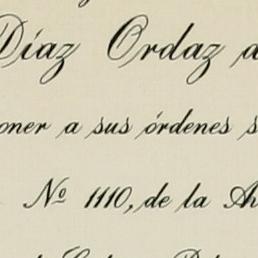 Díaz Ordaz
oner a sus órdenes s
Nº 1110, de la